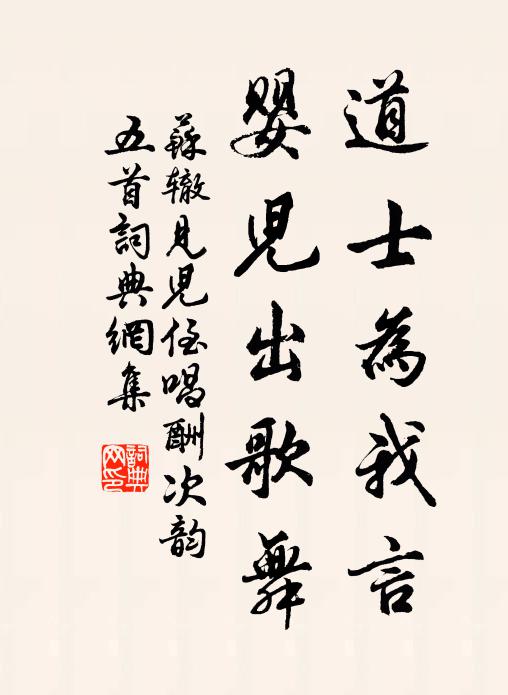 道士為我言
嬰兒出歌舞
蘇辙見児侄唱酬次韵
五首詞典網集
詞典
网印